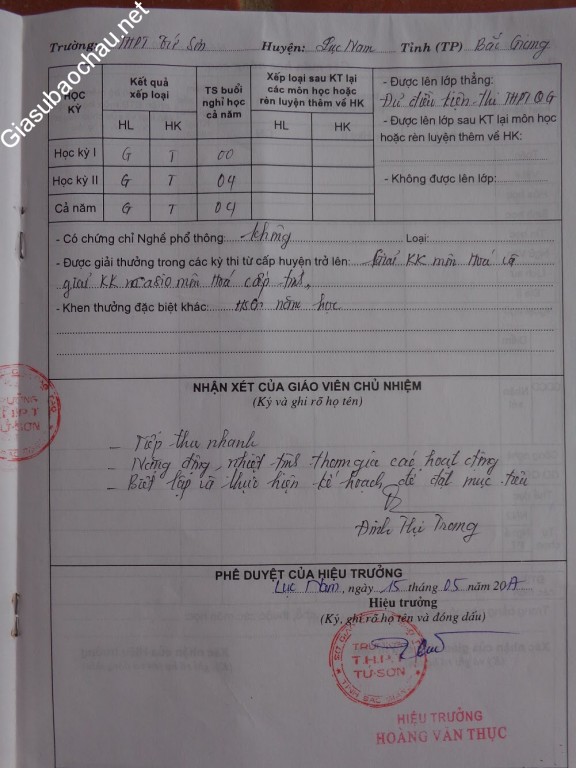 Giasubaochau.net
Trường: THPT Tứ Sơn Huyện: Lục Nam Tỉnh (TP) Bắc Giang
HỌC KỲ
Kết quả xếp loại
TS buổi nghỉ học cả năm
Xếp loại sau KT lại các môn học hoặc rèn luyện thêm về HK
HL HK HL HK
- Được lên lớp thẳng:
Đủ điều kiện thi THPT QG
- Được lên lớp sau KT lại môn học
hoặc rèn luyện thêm về HK:
- Không được lên lớp:
Học kỳ I G T 00
Học kỳ II G T 04
Cả năm G T 04
- Có chứng chỉ Nghề phổ thông: không Loại:
- Được giải thưởng trong các kỳ thi từ cấp huyện trở lên: Giải KK môn Hoá và
giải KK casio môn Hoá cấp tỉnh.
- Khen thưởng đặc biệt khác: HSG năm học
NHẬN XÉT CỦA GIÁO VIÊN CHỦ NHIỆM
(Ký và ghi rõ họ tên)
- Tiếp thu nhanh
- Năng động, nhiệt tình tham gia các hoạt động
- Biết lập và thực hiện kế hoạch để đạt mục tiêu
Đinh Thị Trang
PHÊ DUYỆT CỦA HIỆU TRƯỞNG
Lục Nam, ngày 15 tháng 05 năm 2017
Hiệu trưởng
(Ký, ghi rõ họ tên và đóng dấu)
TRƯỜNG
T.H.P.T
TỨ SƠN
HIỆU TRƯỞNG
HOÀNG VĂN THỰC